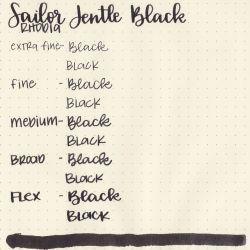 Sailor Jentle Black
RHODIA
extra fine - Black
BLACK
fine - Black
BLACK
medium - Black
BLACK
BROAD - Black
BLACK
FLEX - Black
BLACK